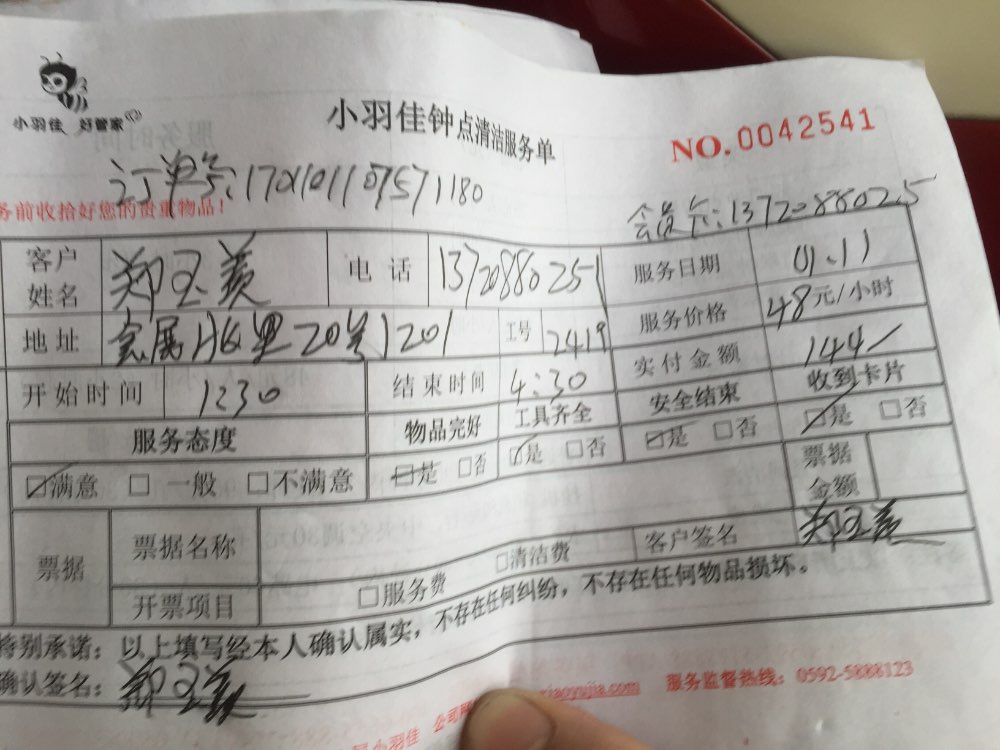 小羽佳 好管家
小羽佳钟点清洁服务单
NO.0042541
订单号:
务前收拾好您的贵重物品!
会员卡:1372088025
客户姓名 郑玉美 电话 13720880251 服务日期 01.11
地址 20号1201 工号 2419 服务价格 48元/小时
开始时间 1230 结束时间 4:30 实付金额 144/
服务态度 物品完好 工具齐全 安全结束 收到卡片
☑满意 □一般 □不满意 ☑是 □否 ☑是 □否 ☑是 □否 ☑是 □否
票据 票据名称 票据金额
开票项目 □服务费 □清洁费 客户签名 郑玉美
特别承诺:以上填写经本人确认属实,不存在任何纠纷,不存在任何物品损坏。
确认签名:郑玉美
小羽佳 xiaoyujia.com 服务监督热线:0592-5888123